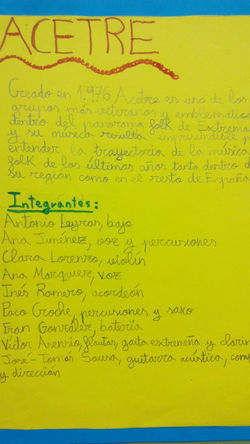 ACETRE
Creado en 1976 Acetre es uno de los
grupos más veteranos y emblemático
dentro del panorama folk de Extrema
y su música resulta imprescindible p
entender la trayectoria de la música
folk de los últimos años tanto dentro d
su región como en el resto de España
Integrantes:
Antonio Leyras, bajo
Ana Jiménez, voz y percusiones
Clara Lorenzo, violín
Ana Márquez, voz
Inés Romero, acordeón
Paco Croche, percusiones y saxo
Fran González, batería
Víctor Asensio, flautas, gaita extremeña y clarin
José-Tomás Sousa, guitarra acústica, comp
y dirección